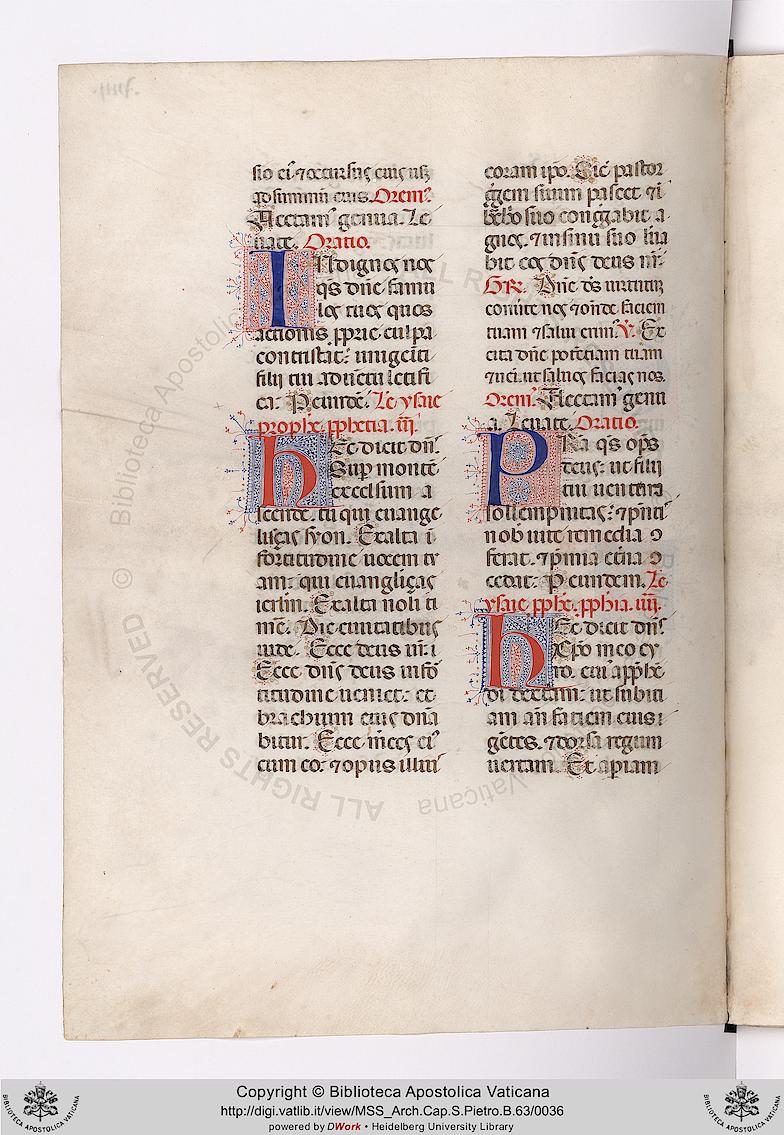 sio ei⁹ ⁊ occursus eius usq;
ad summū eius. Orem⁹.
Flectam⁹ genua. Le
uate. Oratio.
INdignos nos
q̄s dn̄e famu
los tuos quos
actionis pprie culpa
contristat: unigeīti
filii tui aduētu letifi
ca. Per eundē. Le ysaie
prophe. pphetia. iij.
HEc dicit dn̄s.
Sup montē
excelsum a
scende. tu qui euange
liças syon. Exalta ī
fortitudine uocem tu
am: qui euangliças
ierlm̄. Exalta noli ti
mē. Dic ciuitatibus
iude. Ecce deus ur̄ı
Ecce dn̄s deus in fo
titudine ueniet: et
brachium eius dn̄a
bitur. Ecce m̄ces ei⁹
cum eo: ⁊ opus illiu
coram ip̄o. Sic̄ pastor
g̃gem suum pascet ⁊ ī
bc̄hio suo cong̃gabit a
gnos. ⁊ in sinu suo lēua
bit eos dn̄s deus nr̄.
GR. Dn̄e d̄s uirtutum
conuīte nos ⁊ on̄de faciem
tuam ⁊ salui erim⁹. V̄. Ex
cita dn̄e potētiam tuam
⁊ ueni. ut saluos facias nos.
Orem⁹. Flectam⁹ genu
a. Leuate. Oratio.
PRa q̄s op̄s
deus: ut filii
tui uentura
sollempnitas: ⁊ p̄n̄ti
nob̄ uite remedia ↄ
ferat. ⁊ p̄mia et̄na ↄ
cedat: P eundem. Le
ysaie pphe. pphia. iiij.
HEc dicit dn̄s.
Xp̄o meo cy
ro. cui⁹ app̄he
di dexteram: ut subici
am an̄ faciem eius ı
gētes. ⁊ dorsa regum
uertam. Et aperiam
© Biblioteca Apostolica Vaticana
ALL RIGHTS RESERVED
Copyright © Biblioteca Apostolica Vaticana
http://digi.vatlib.it/view/MSS_Arch.Cap.S.Pietro.B.63/0036
powered by DWork • Heidelberg University Library
BIBLIOTECA APOSTOLICA VATICANA
BIBLIOTECA APOSTOLICA VATICANA